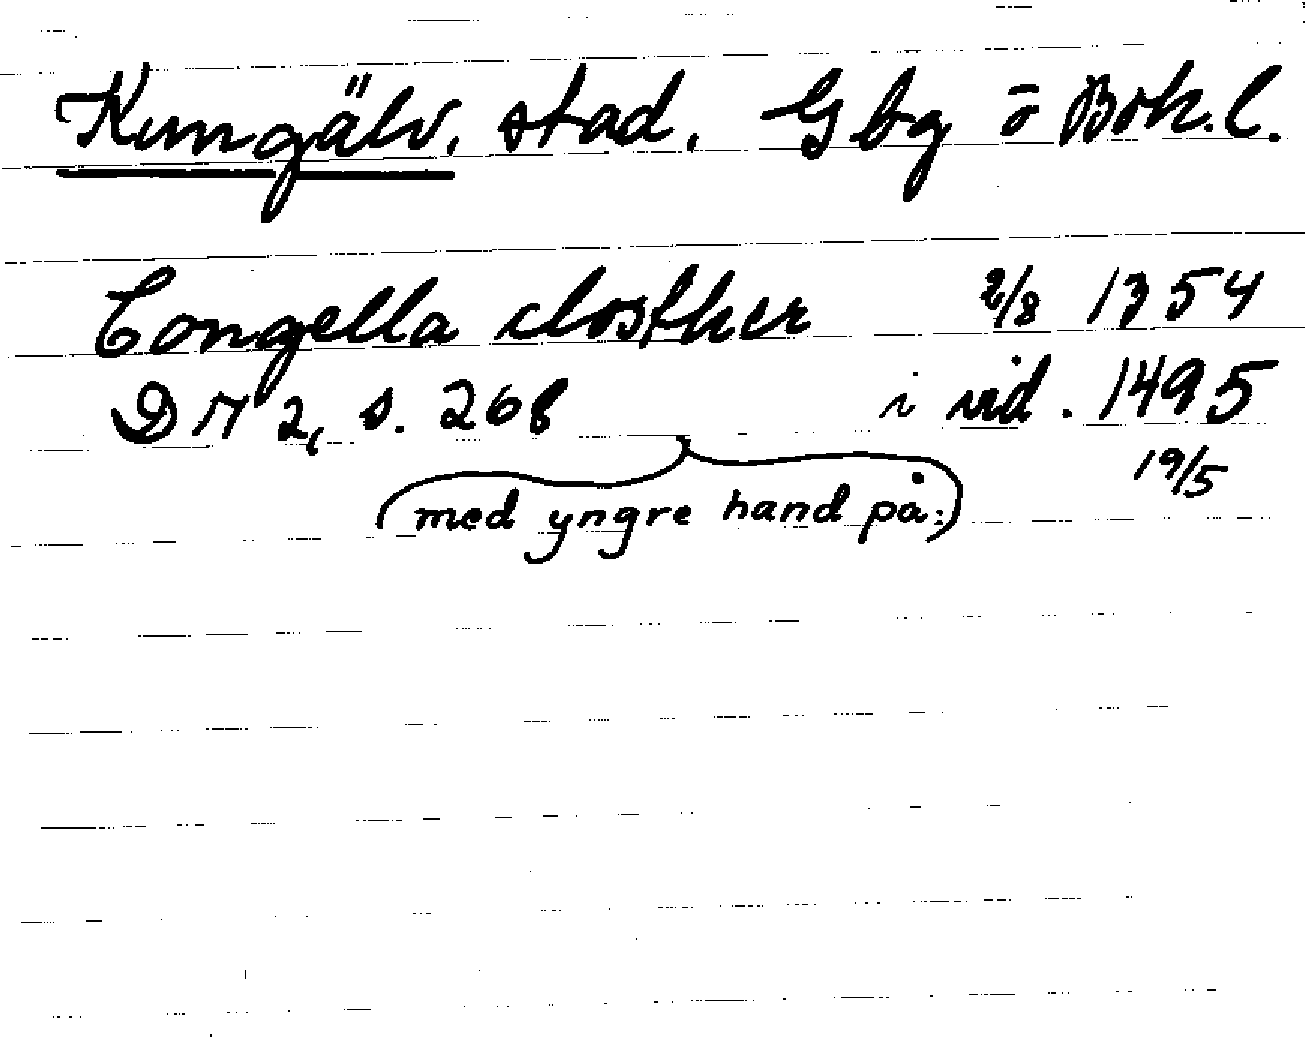 Kungälv, stad, Gbg o Boh.l.
Congella closther 2/8 1354
DN 2, s. 268 i vid. 1495
19/5
(med yngre hand på:)